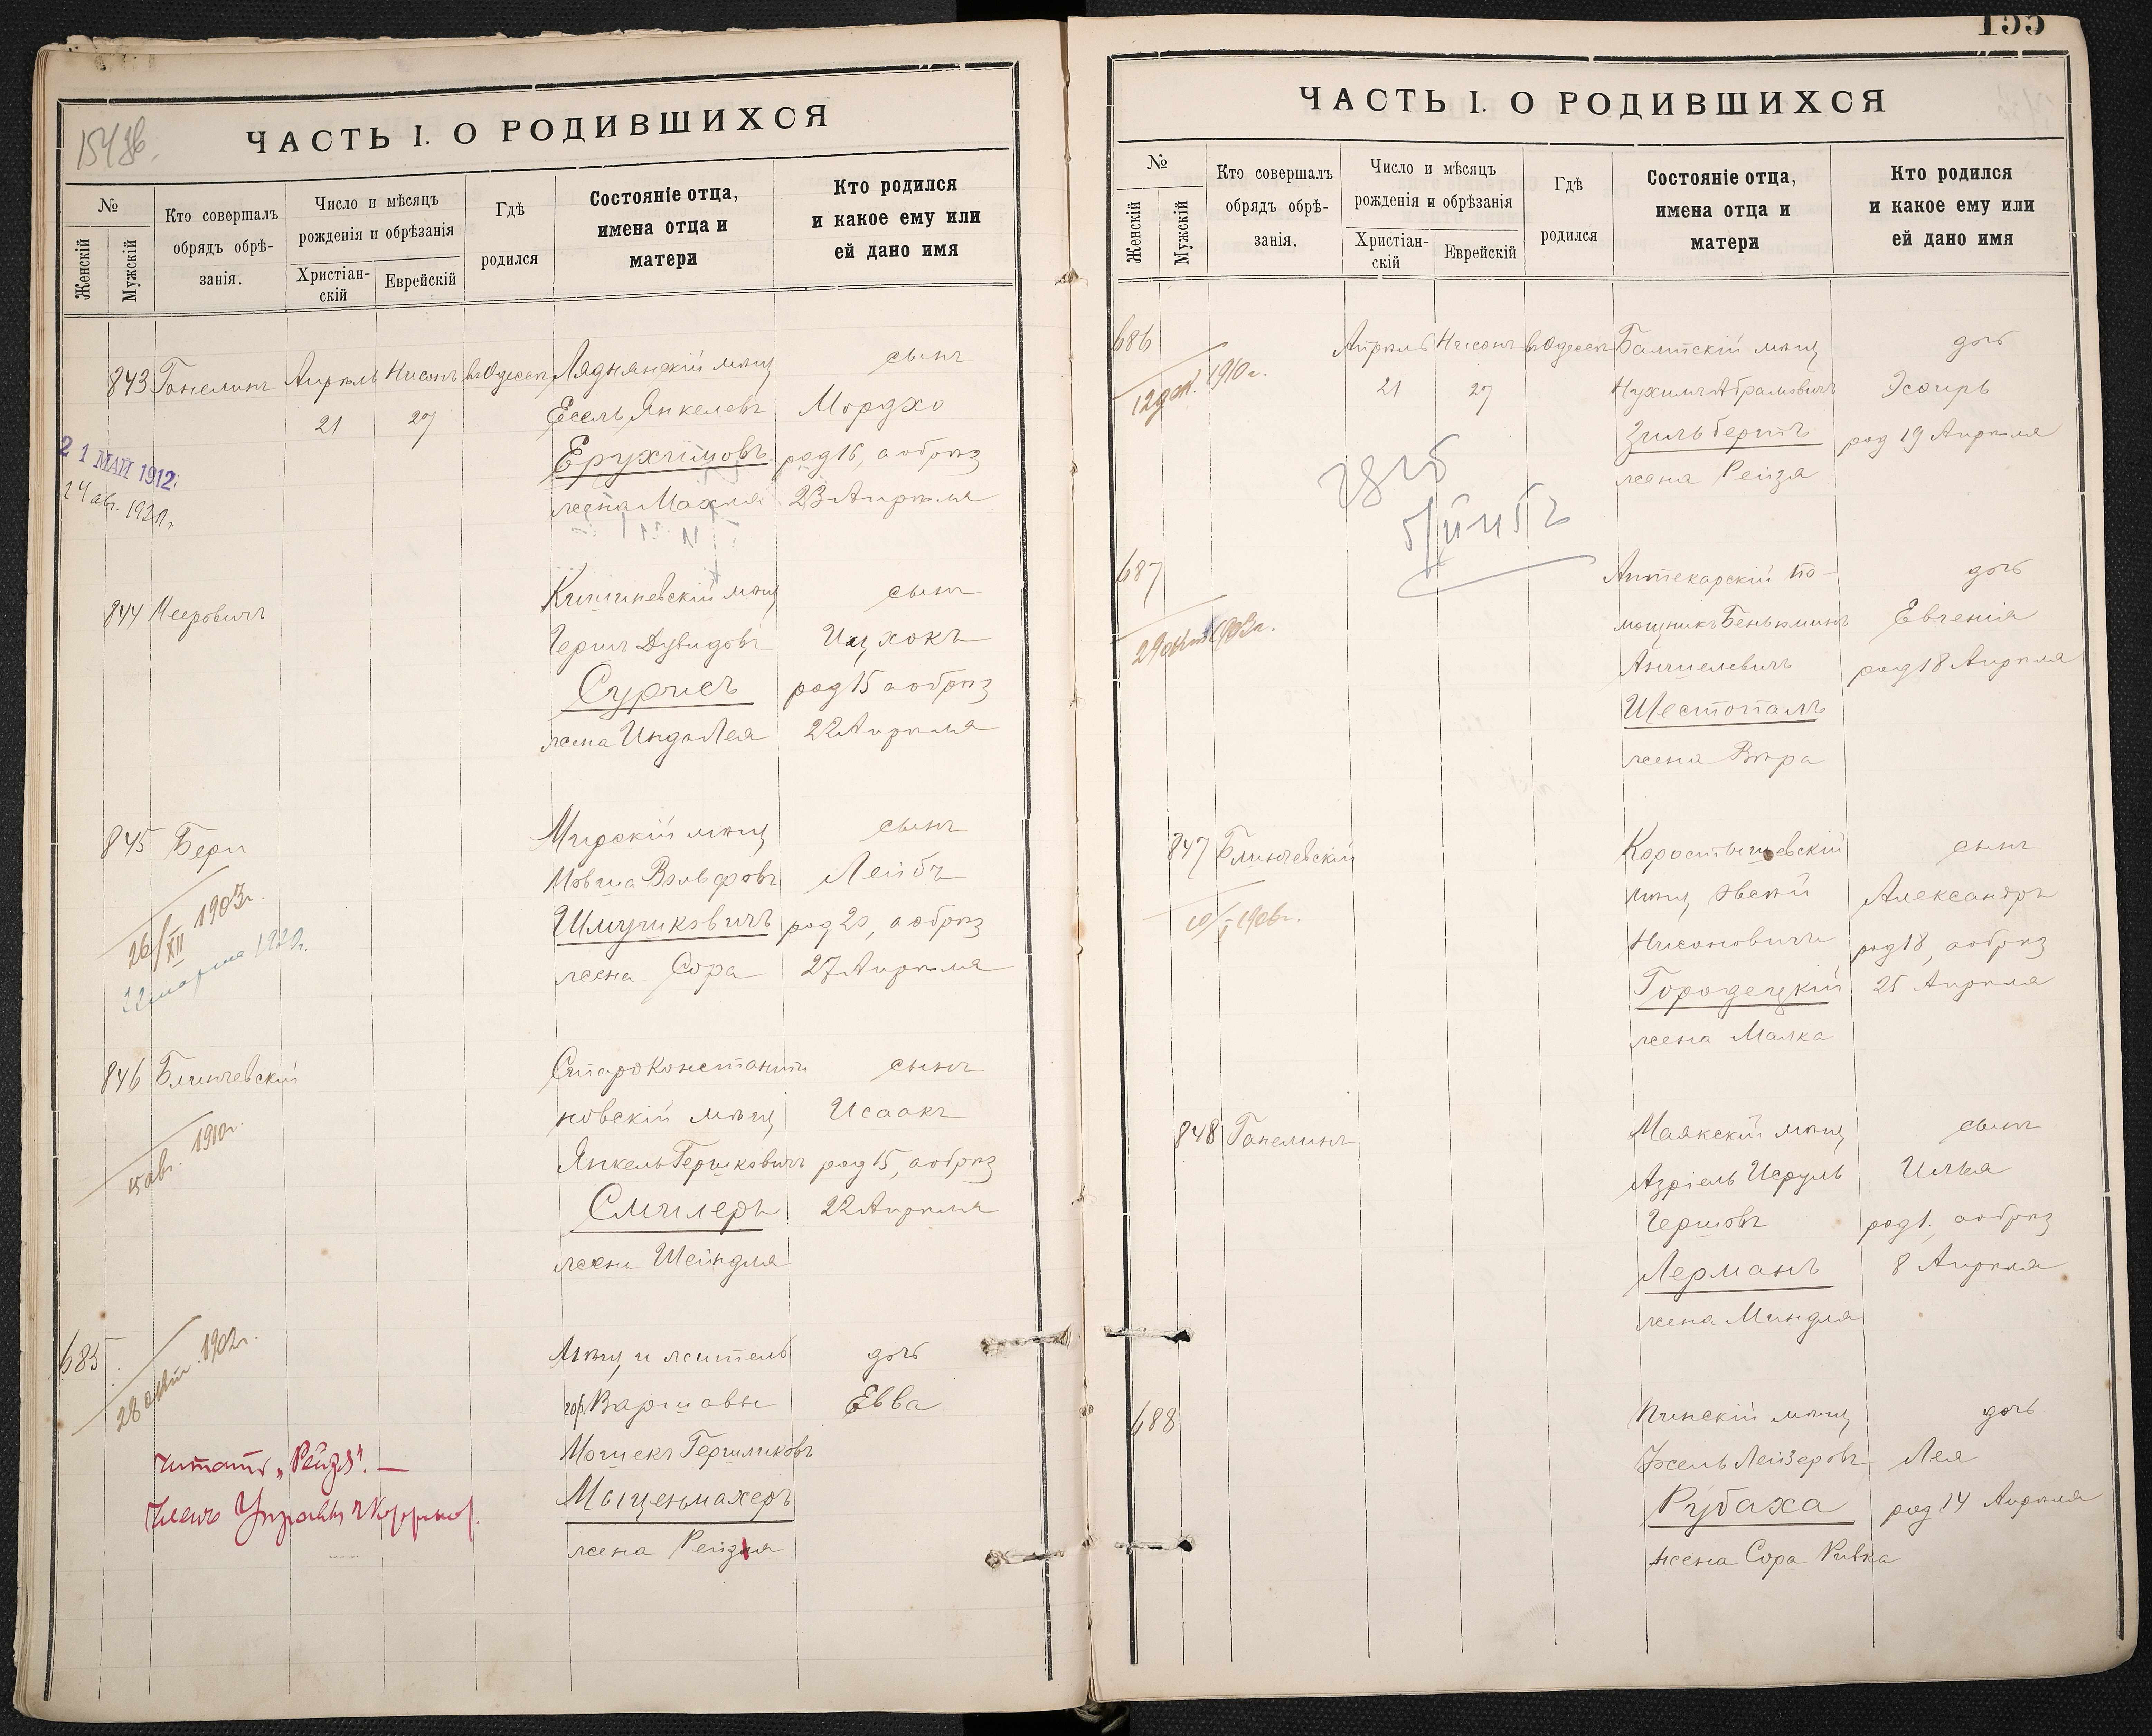 154 об.
ЧАСТЬ I. О РОДИВШИХСЯ
№
Женскій
Мужскій
Кто совершалъ
обрядъ обрѣ-
занія.
Число и мѣсяцъ
рожденія и обрѣзанія
Христіан-
скій
Еврейскій
Гдѣ
родился
Состояніе отца,
имена отца и
матери
Кто родился
и какое ему или
ей дано имя
843 Ганелинъ Апрѣль Нисонъ въ Одессѣ Ляднянскій мѣщ сынъ
21 27 Есель Янкелевъ Мордхо
Ерухимовъ род 16, а обрѣз
жена Махля 23 Апрѣля
21 МАЙ 1912
24 авг. 1920 г.
844 Мееровичъ Кишиневскій мѣщ сынъ
Гершъ Дувидовъ Ицхокъ
Сурисъ род 15 а обрѣз
жена Инда Лея 22 Апрѣля
845 Бери Мирскій мѣщ сынъ
Мовша Вольфовъ Лейбъ
Шмушковичъ род 20, а обрѣз
жена Сора 27 Апрѣля
26/XII 1903 г.
22 марта 1920 г.
846 Блинчевскій Староконстанти сынъ
новскій мѣщ Исаакъ
Янкель Гершковичъ род 15, а обрѣз
Смилеръ 22 Апрѣля
жена Шейндля
15 авг. 1910 г.
685 Мѣщ и житель дочь
гор Варшавы Евва
Мошекъ Гершликовъ
Мыценмахеръ
жена Рейзля
28 окт. 1902 г.
читать „Рейзя“. —
Членъ Управы
155
ЧАСТЬ I. О РОДИВШИХСЯ
№
Женскій
Мужскій
Кто совершалъ
обрядъ обрѣ-
занія.
Число и мѣсяцъ
рожденія и обрѣзанія
Христіан-
скій
Еврейскій
Гдѣ
родился
Состояніе отца,
имена отца и
матери
Кто родился
и какое ему или
ей дано имя
686 Апрѣль Нисонъ въ Одессѣ Балтскій мѣщ дочь
21 27 Нухимъ Абрамовичъ Эсѳирь
Зильбертъ род 19 Апрѣля
жена Рейзя
1910 г.
687 Аптекарскій по-
дочь
мощникъ Беньюминъ Евгенія
Аншелевичъ род 18 Апрѣля
Шестопалъ
жена Вѣра
1903 г.
847 Блинчевскій Коростышевскій сынъ
мѣщ Овсѣй Александръ
Нисоновичъ род 18, а обрѣз
Городецкій 25 Апрѣля
жена Малка
10/I 1906 г.
848 Ганелинъ Маякскій мѣщ сынъ
Азріель Исруль Илья
Гершовъ род 1, а обрѣз
Лерманъ 8 Апрѣля
жена Миндля
688 Пинскій мѣщ дочь
Іосель Лейзеровъ Лея
Рубаха род 14 Апрѣля
жена Сора Ривка